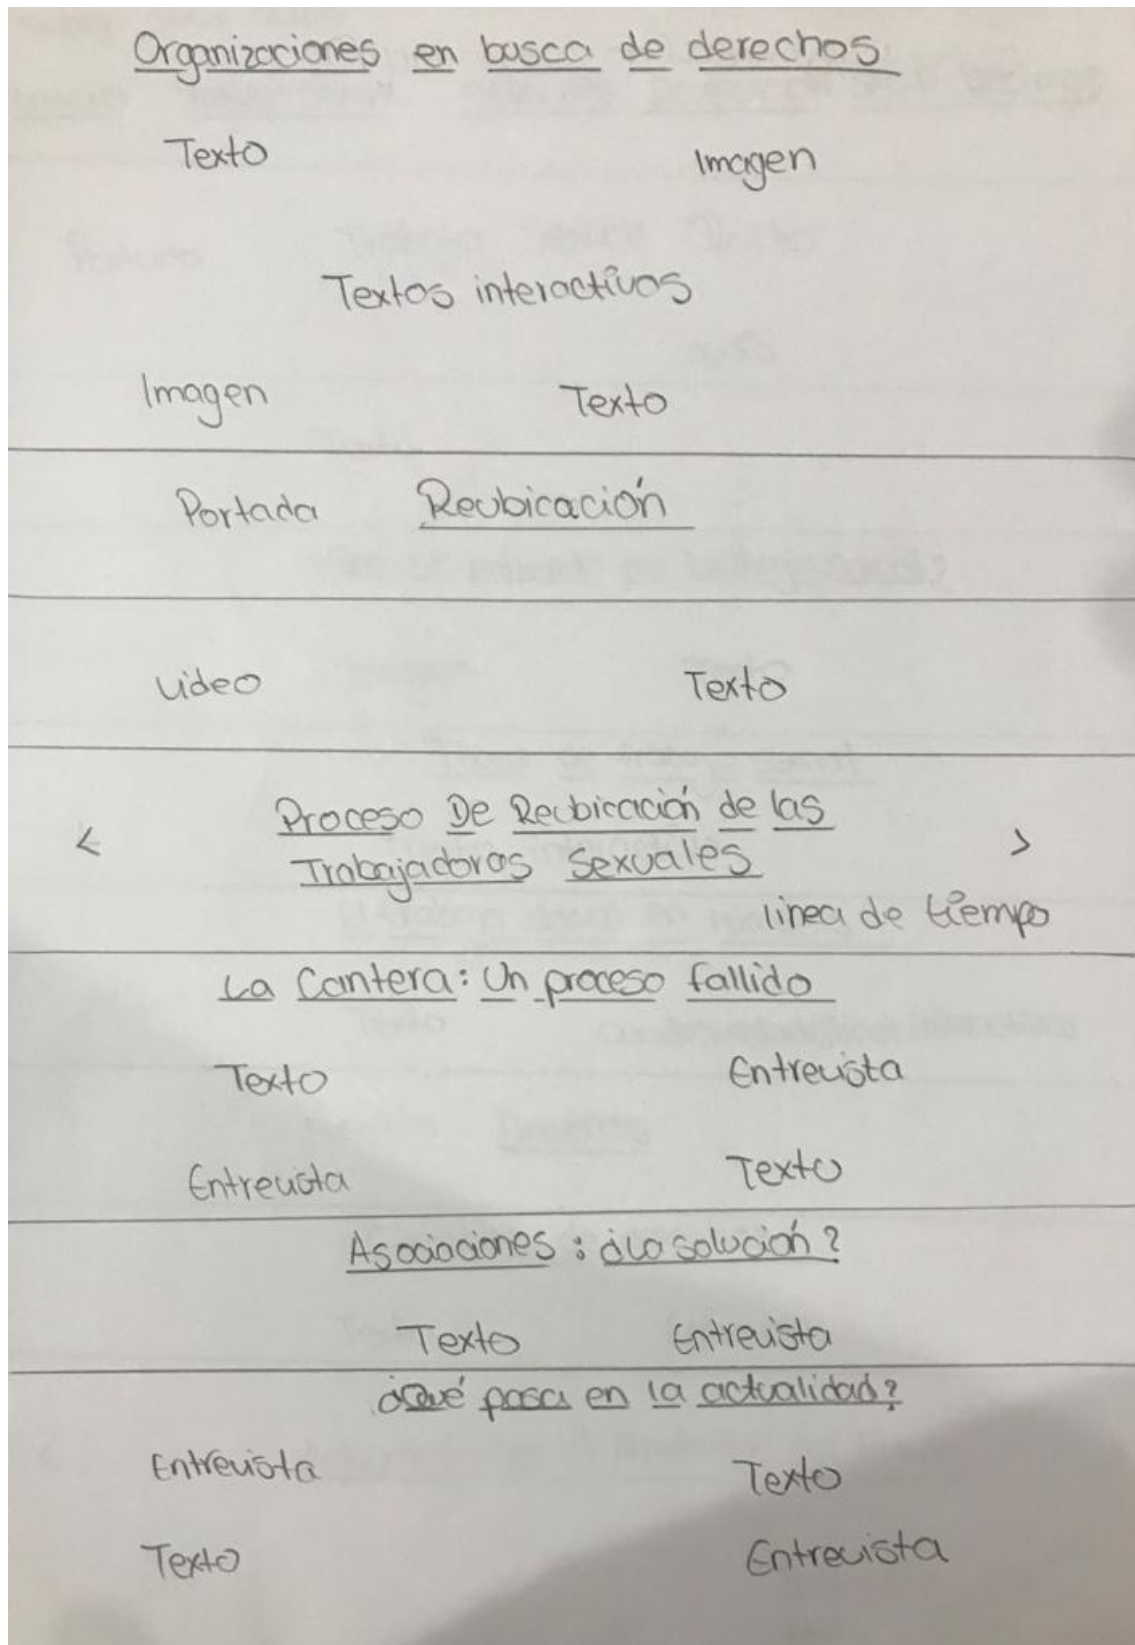 Organizaciones en busca de derechos.
Texto Imagen
Textos interactivos
Imagen Texto
Portada Reubicación
Video Texto
< Proceso De Reubicación de las >
Trabajadoras Sexuales
linea de tiempo
La Cantera: Un proceso fallido
Texto Entrevista
Entrevista Texto
Asociaciones: ¿La solución?
Texto Entrevista
¿Qué pasa en la actualidad?
Entrevista Texto
Texto Entrevista